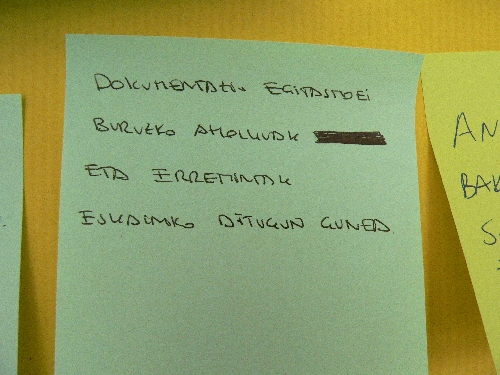 DOKUMENTATU EGITASMOEI
BURUZKO AHOLKUAK
ETA ERREMINTAK
ESKAINIKO DITUGUN GUNEA.
AN
BAK
S